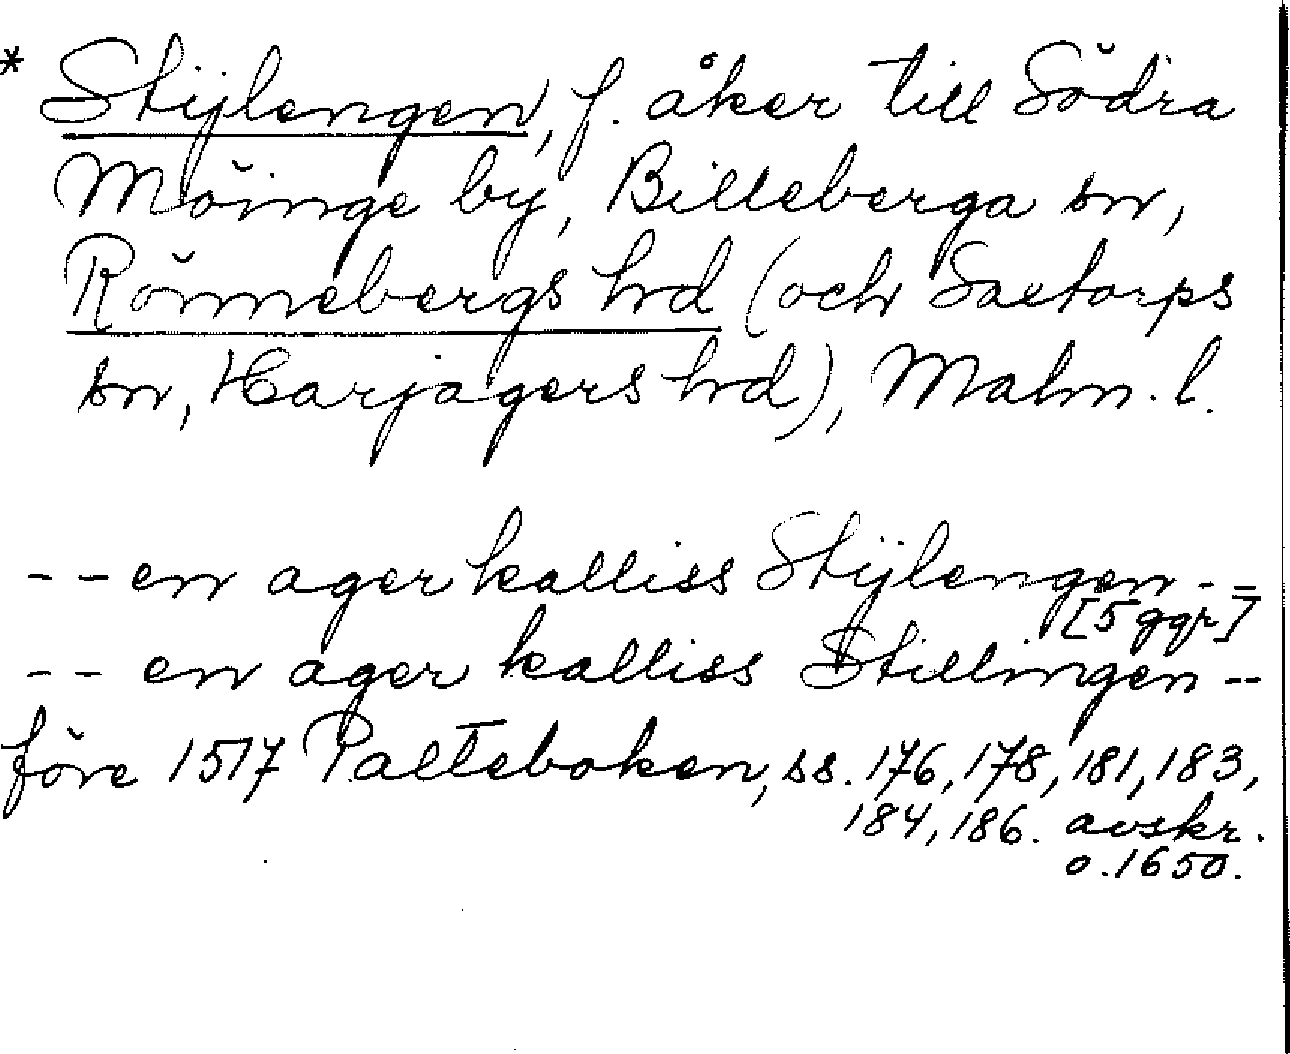 * Stijlengen, f. åker till Södra
Möinge by, Billeberga sn,
Rönnebergs hrd (och Saxtorps
sn, Harjagers hrd), Malm. l.
-- en ager kalliss Stijlengen --
[5 ggr]
-- en ager kalliss Stillingen --
före 1517 Palteboken, ss. 176, 178, 181, 183,
184, 186. avskr.
o. 1650.